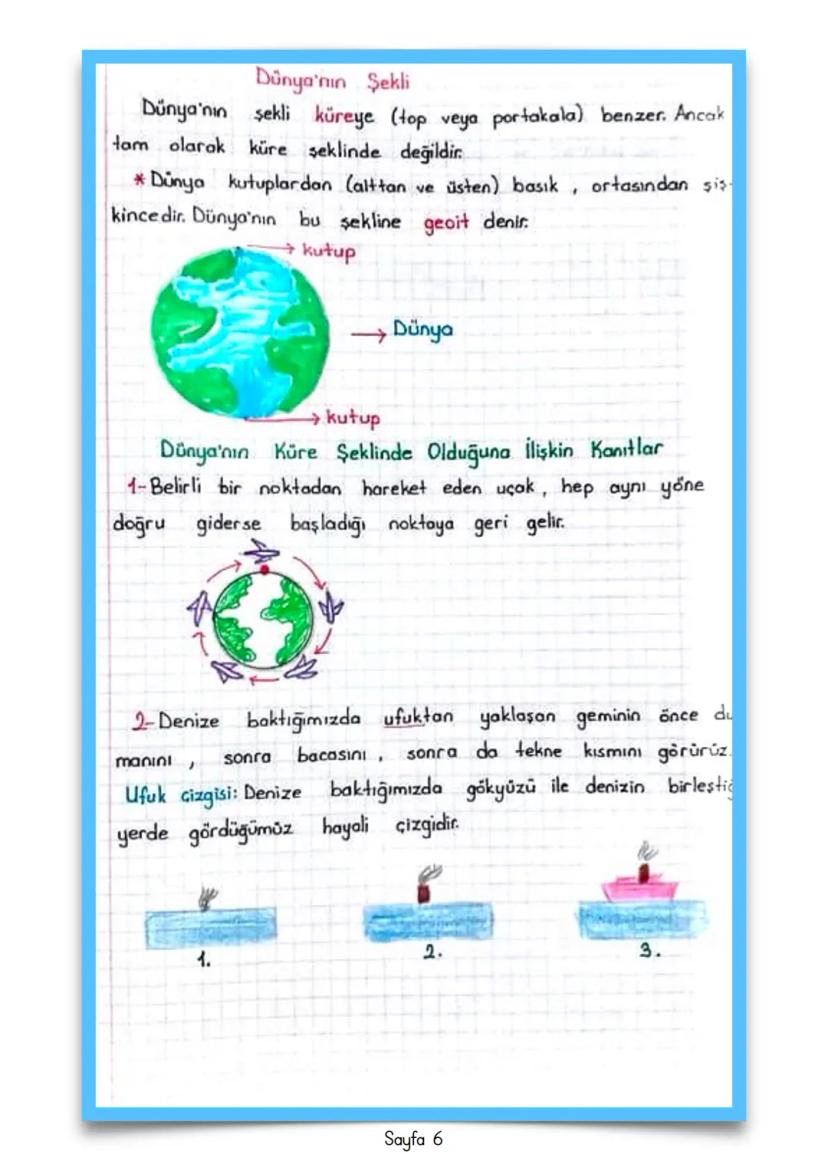 Dünya'nın Şekli
Dünya'nın şekli küreye (top veya portakala) benzer. Ancak
tam olarak küre şeklinde değildir.
* Dünya kutuplardan (alttan ve üsten) basık , ortasından şiş-
kincedir. Dünya'nın bu şekline geoit denir.
→ kutup
→ Dünya
→ kutup
Dünya'nın Küre Şeklinde Olduğuna İlişkin Kanıtlar
1- Belirli bir noktadan hareket eden uçak , hep aynı yöne
doğru giderse başladığı noktaya geri gelir.
2- Denize baktığımızda ufuktan yaklaşan geminin önce du
manını , sonra bacasını , sonra da tekne kısmını görürüz.
Ufuk çizgisi: Denize baktığımızda gökyüzü ile denizin birleştiğ
yerde gördüğümüz hayali çizgidir.
1. 2. 3.
Sayfa 6